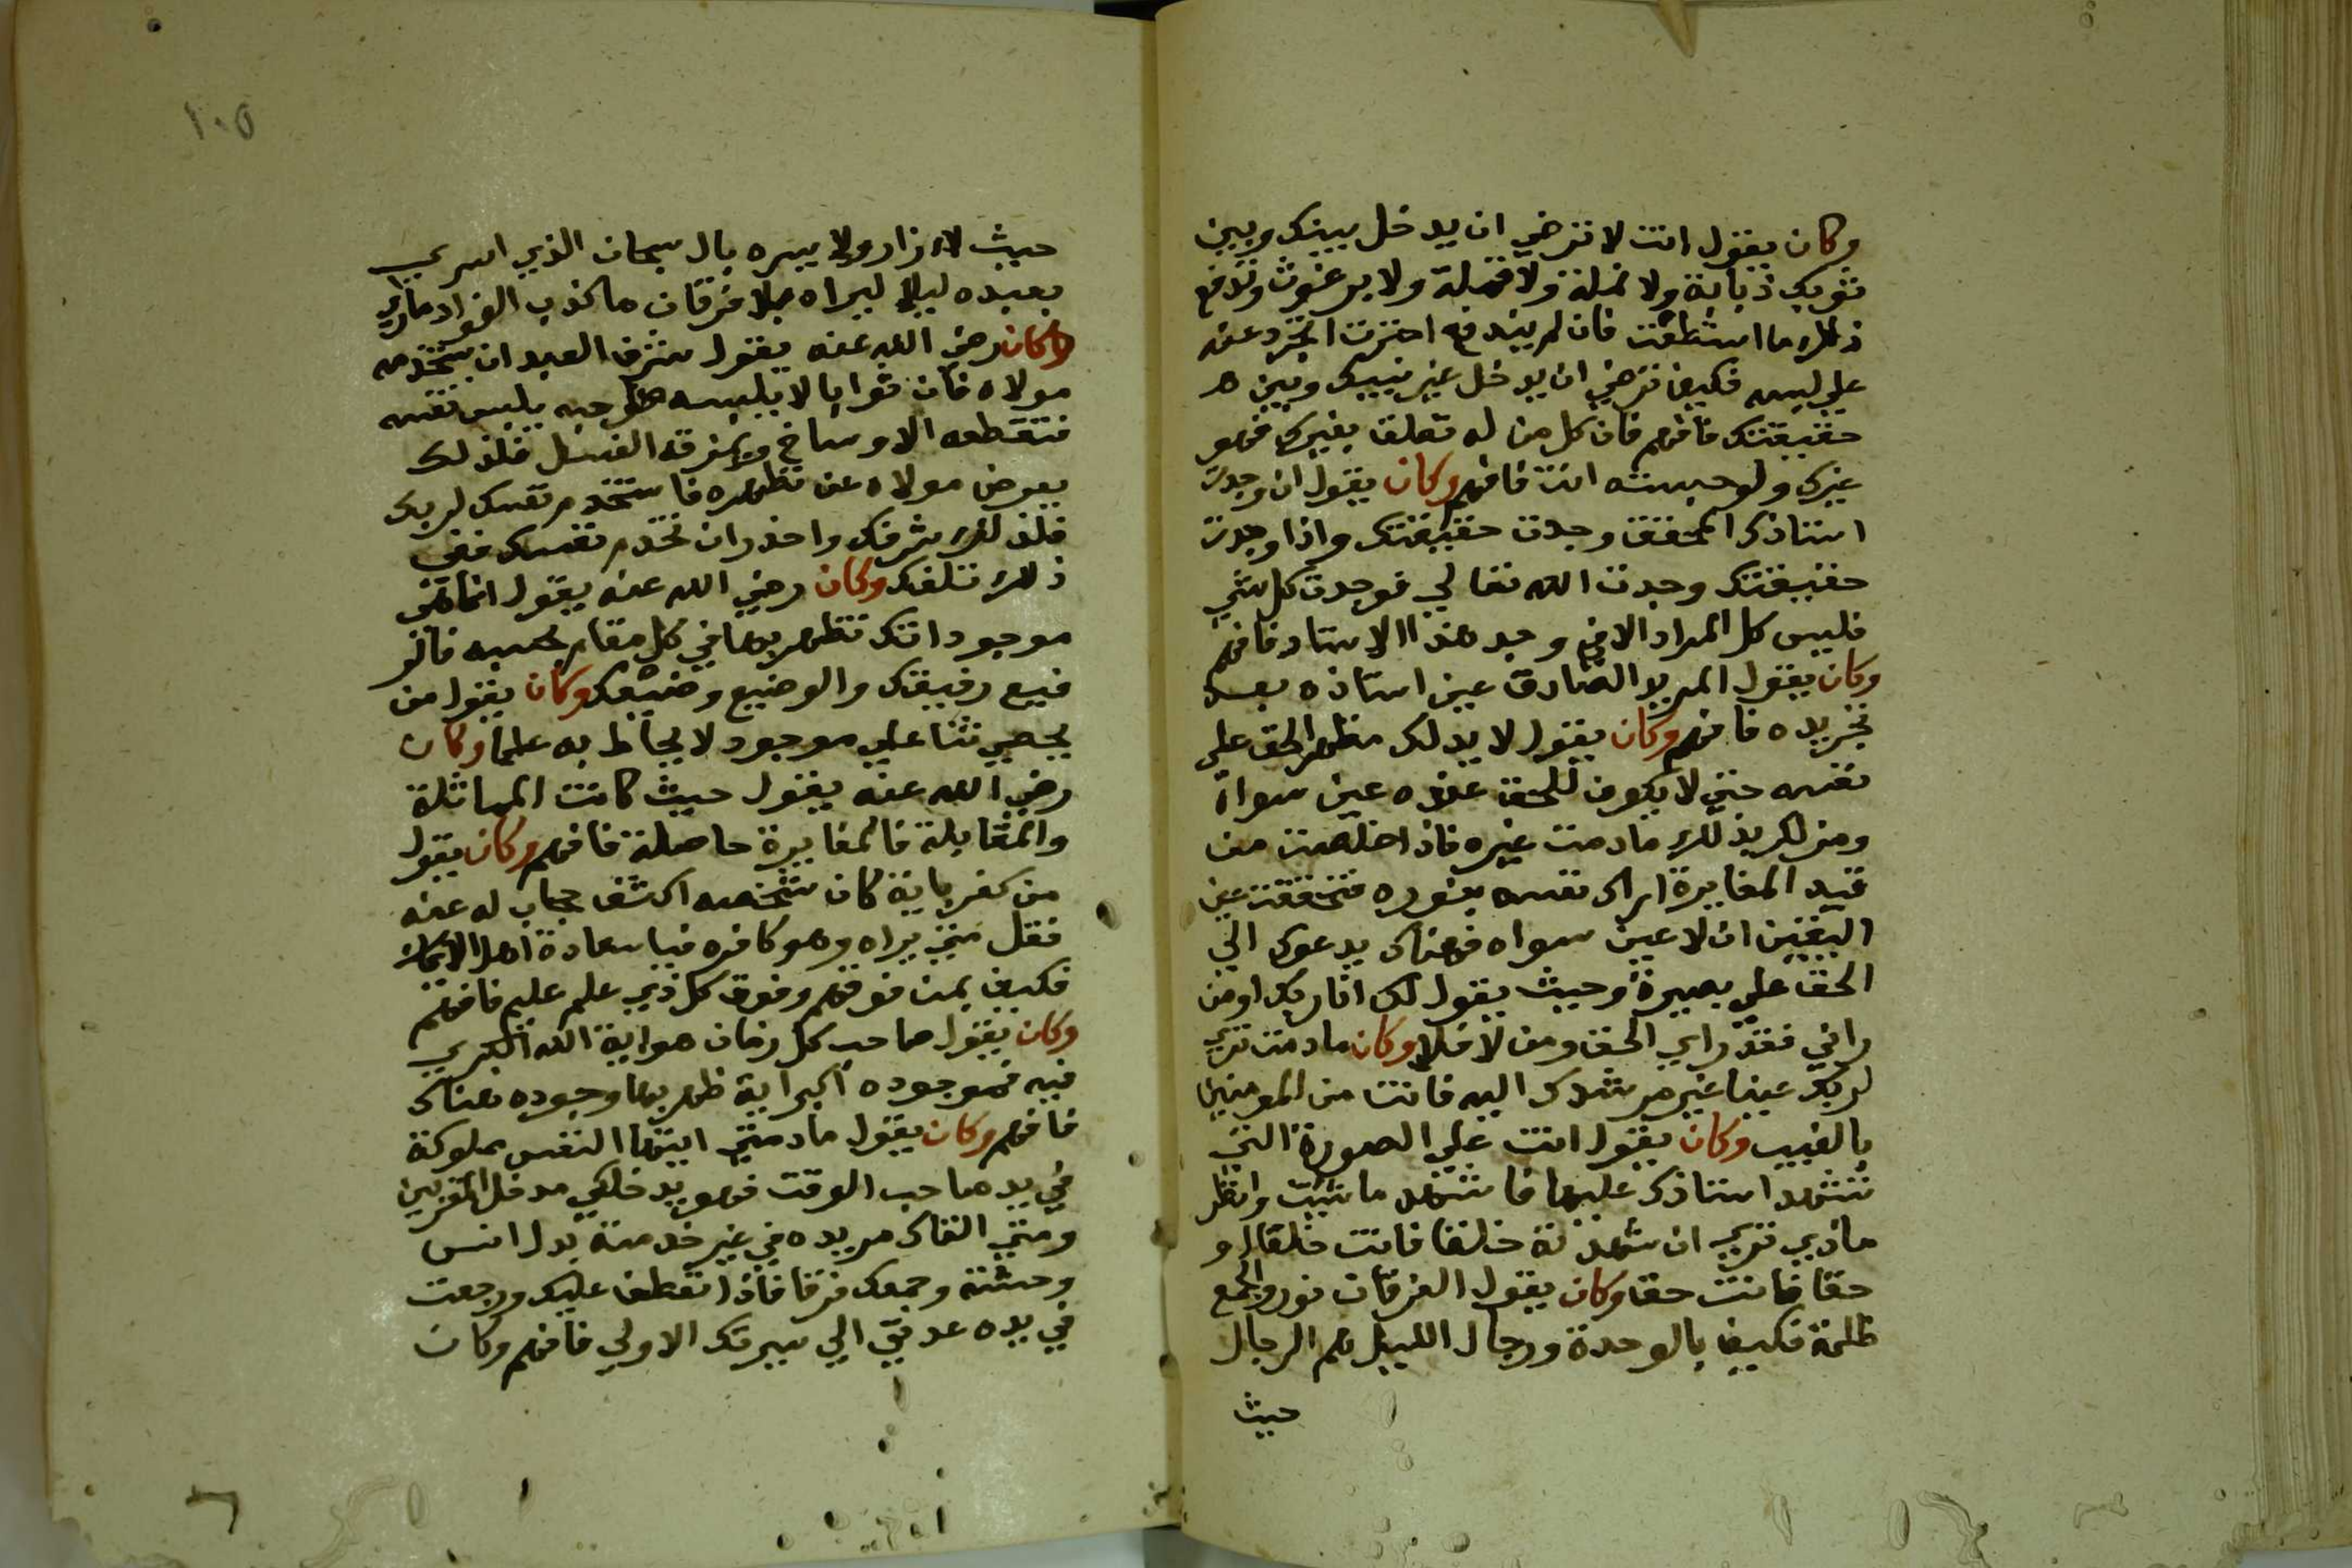 وكان يقول انت لا ترضي ان يدخل بينك وبين
ثوبك ذبابة ولا نملة ولا قملة ولا برغوث وتدفع
ذلك ما استطعت فان لم يندفع اخترت التجرد عنه
علي لبسه فكيف ترضي ان يدخل غير بينك وبين
حقيقتك فافهم فان كل من له تعلق بغيرك فهو
غيرك ولو حسبته انت فافهم وكان يقول ان وجدت
استاذك المحقق وجدت حقيقتك واذا وجدت
حقيقتك وجدت الله تعالي فوجدت كل شي
فليس كل المراد الا في وجد هذا الاستاد فافهم
وكان يقول المريد الصادق عين استاذه بعد
تجريده فافهم وكان يقول لا يدلك مظهر الحق علي
نفسه حتي لا يكون للحق عنده عين سواه
ومن لك بذلك مادمت غيره فاذا خلصت من
قيد المغايرة اراك نفسه بنوره فتحققت عين
اليقين ان لا عين سواه فهناك يدعوك الي
الحق علي بصيرة وحيث يقول لك انا ربك اومن
راني فقد راي الحق ومن لا فلا وكان مادمت تري
لربك عينا غير مرشدك اليه فانت من المومنين
بالغيب وكان يقول انت علي الصورة التي
تشهد استاذك عليها فاشهد ما شيت وانظر
ماذي تري ان شهدته خلقا فانت خلقا او
حقا فانت حقا وكان يقول الفرقان نور والجمع
ظلمة فكيف بالوحدة ورجال الليل هم الرجال
حيث
١٠٥
حيث لا زار ولا يسره بال سبحان الذي اسري
بعبده ليلا ليراه بلا فرقان ما كذب الفواد ماراي
وكان رضي الله عنه يقول شرف العبد ان يستخدمه
مولاه فان ثوابا لا يلبسه صاحبه يلبس نفسه
فتقطعه الاوساخ ويمزقه الغسل فلذلك
يعرض مولاه عن تطهره فاستخدم نفسك لربك
فلذلك شرفك واحذر ان تخدم نفسك ففي
ذلك تلفك وكان رضي الله عنه يقول انما هي
موجوداتك تظهر بها في كل مقام بحسبه فالر
فيع رفيقك والوضيع وضيعك وكان يقول من
يحصي ثنا علي موجود لا يحاط به علما وكان
رضي الله عنه يقول حيث كانت المماثلة
والمقابلة فالمغايرة حاصلة فافهم وكان يقول
من كفر باية كان شخصه اكثف حجاب له عنه
فقل متي يراه وهو كافره فيا سعادة اهل الايمان
فكيف بمن فوقهم وفوق كل ذي علم عليم فافهم
وكان يقول صاحب كل زمان هو اية الله الكبري
فيه فموجوده اكبر اية ظهر بها وجوده هناك
فافهم وكان يقول مادمتي ايتها النفس مملوكة
في يد صاحب الوقت فهو يدخلكي مدخل المقربين
ومتي القاك مريده في غير خدمته بدل انس
وحشته وجمعك فرقا فاذا تعطف عليك ورجعت
في يده عدتي الي سيرتك الاولي فافهم وكان